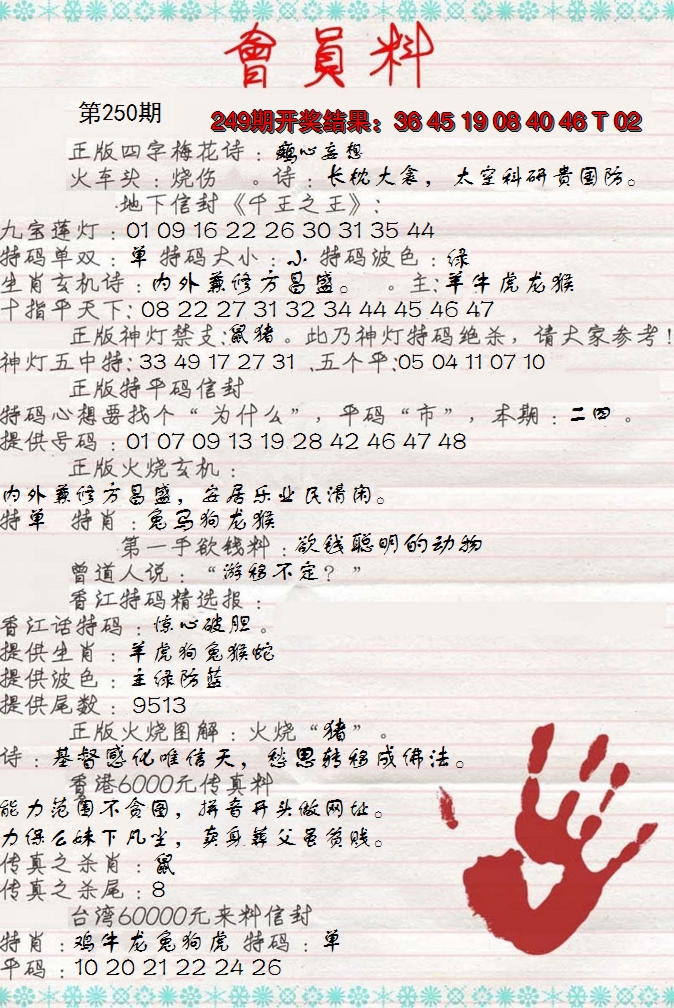 會員料
第250期
249期开奖结果：36 45 19 08 40 46 T 02
正版四字梅花诗：痴心妄想
火车头：烧伤 。诗：长枕大衾，太空科研贵国防。
地下信封《千王之王》：
九宝莲灯：01 09 16 22 26 30 31 35 44
特码单双：单 特码大小：小 特码波色：绿
生肖玄机诗：内外兼修方昌盛。 。主：羊牛虎龙猴
十指平天下：08 22 27 31 32 34 44 45 46 47
正版神灯禁支：鼠猪。此乃神灯特码绝杀，请大家参考！
神灯五中特：33 49 17 27 31 、五个平：05 04 11 07 10
正版特平码信封
特码心想要找个“为什么”，平码“市”，本期：二四。
提供号码：01 07 09 13 19 28 42 46 47 48
正版火烧玄机：
内外兼修方昌盛，安居乐业民清闲。
特单 特肖：兔马狗龙猴
第一手欲钱料：欲钱聪明的动物
曾道人说：“游移不定？”
香江特码精选报：
香江话特码：惊心破胆。
提供生肖：羊虎狗兔猴蛇
提供波色：主绿防蓝
提供尾数：9513
正版火烧图解：火烧“猪”。
诗：基督感化唯信天，愁思转移成佛法。
香港6000元传真料
能力范围不贪图，拼音开头做网址。
力保么妹下凡尘，卖身葬父虽贫贱。
传真之杀肖：鼠
传真之杀尾：8
台湾60000元来料信封
特肖：鸡牛龙兔狗虎 特码：单
平码：10 20 21 22 24 26